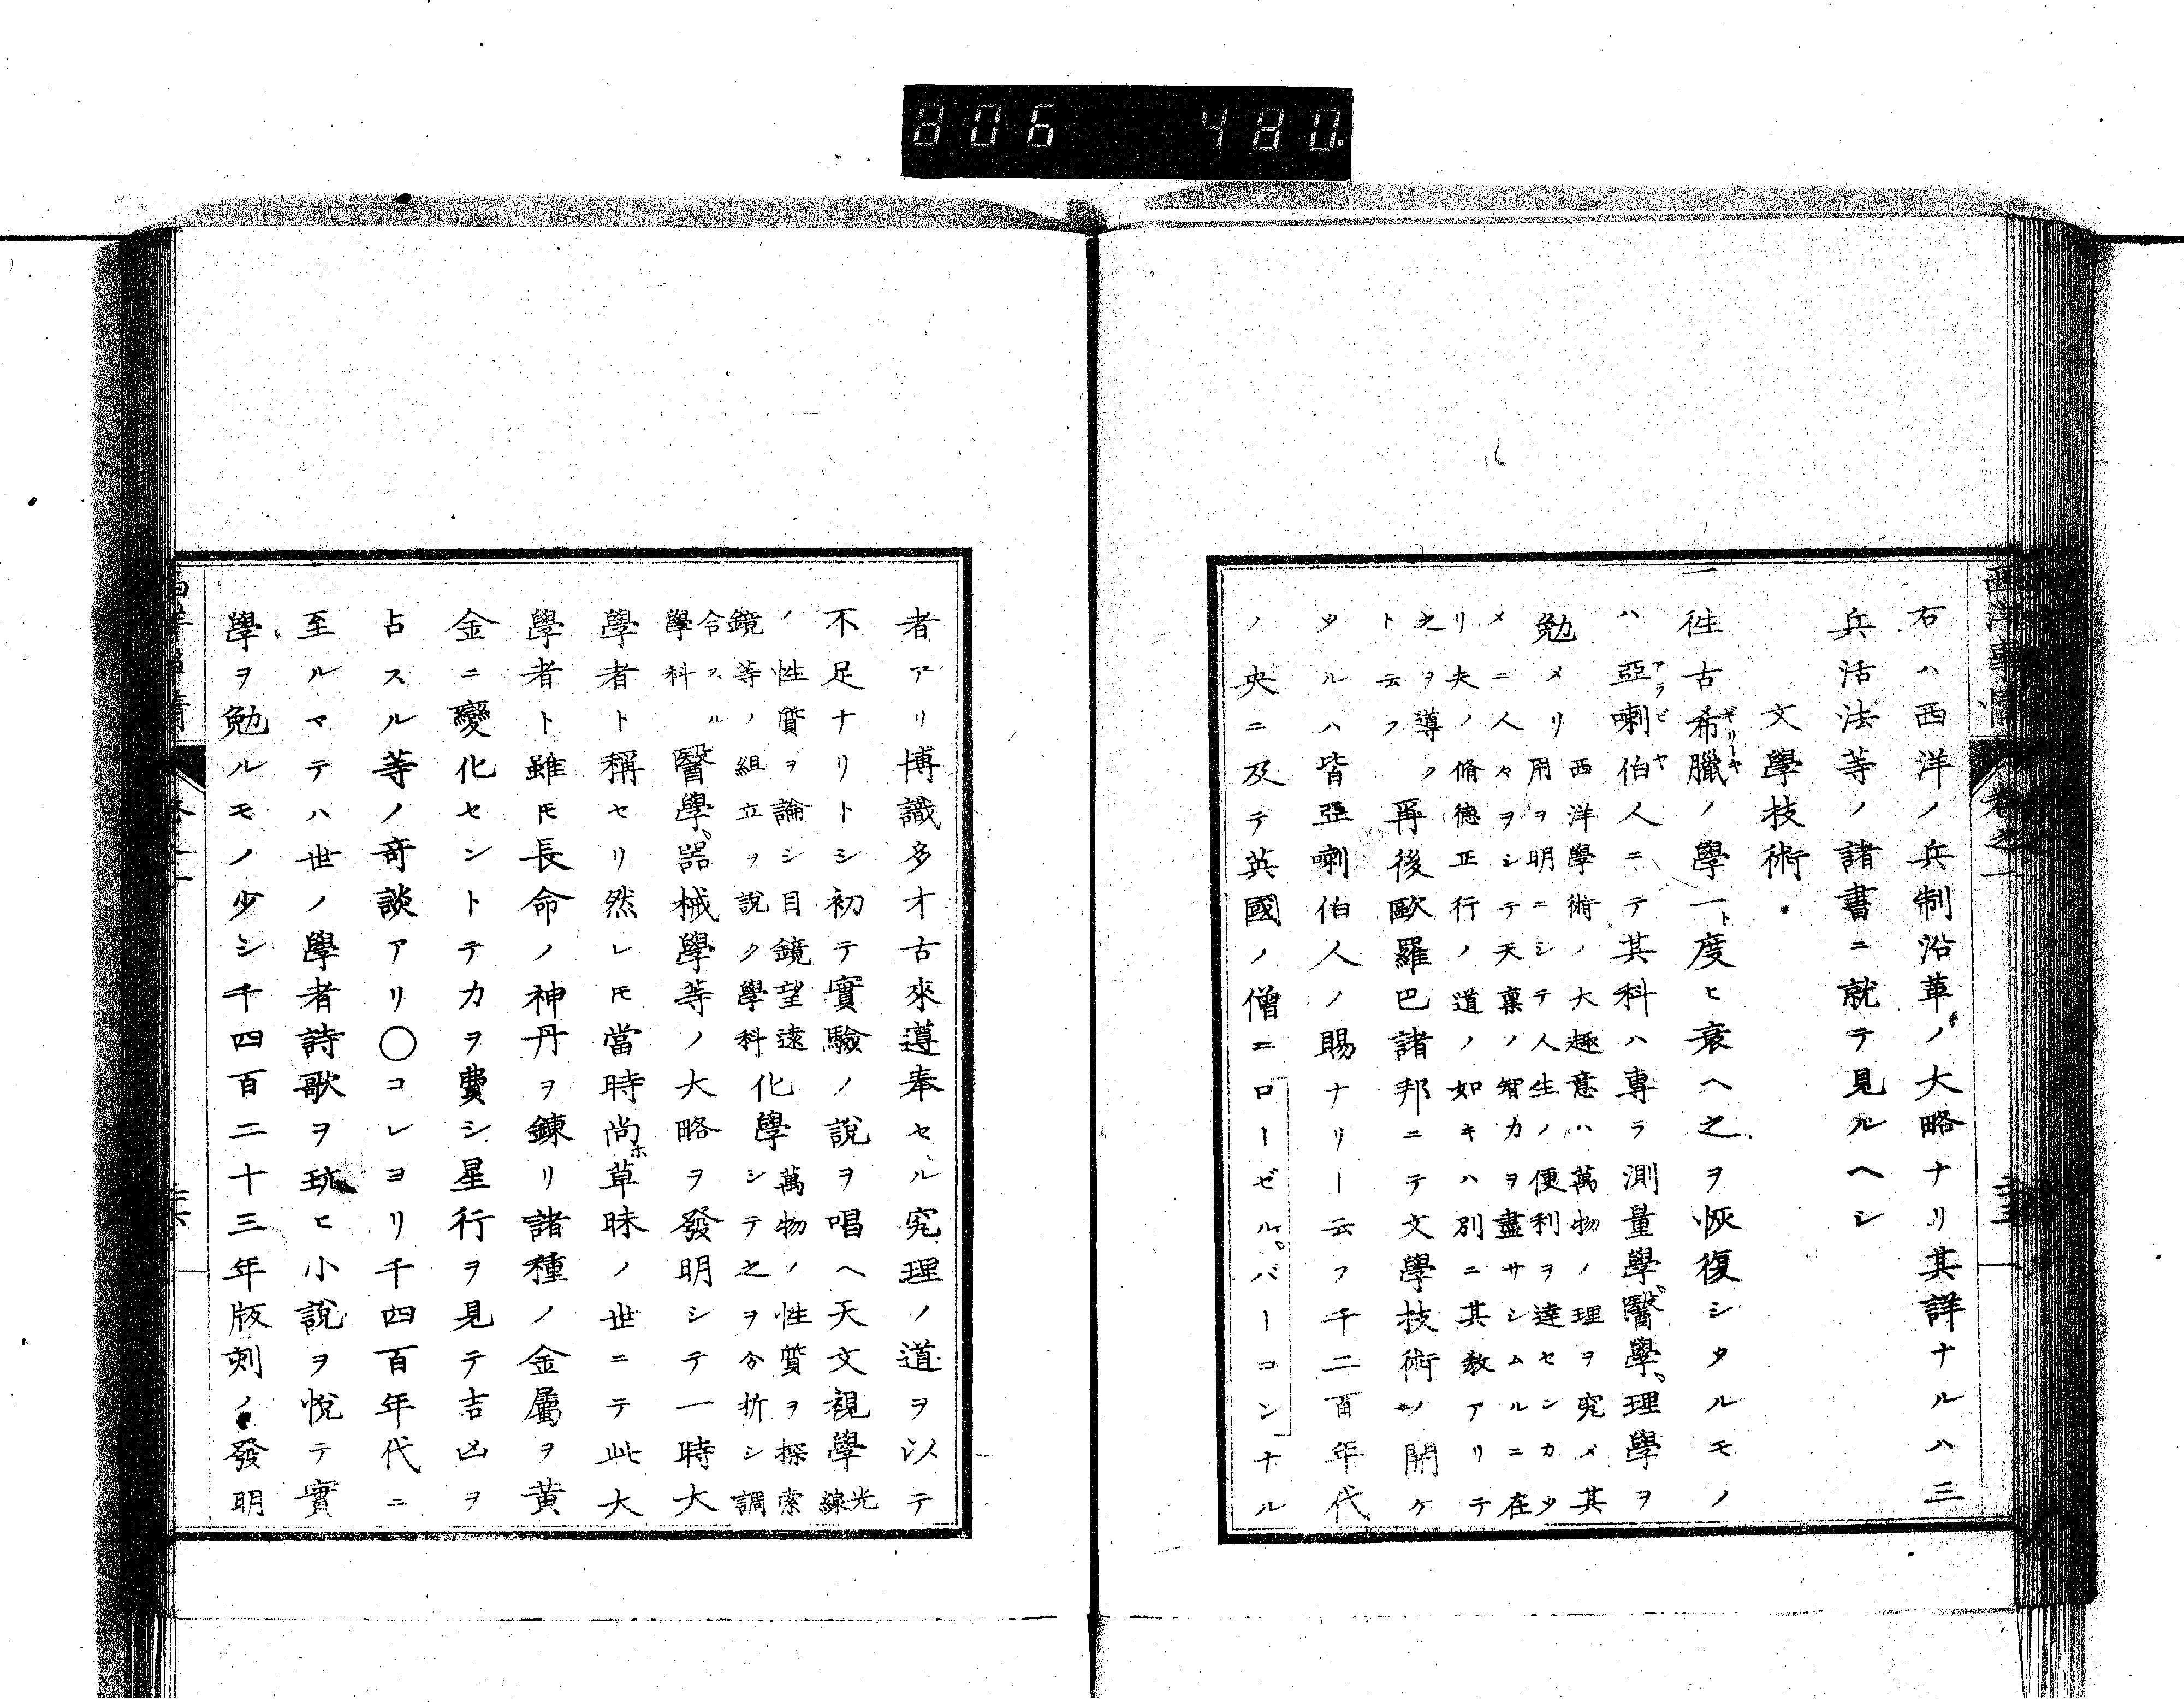 806 480.
西洋事情 卷之一
右ハ西洋ノ兵制沿革ノ大略ナリ其詳ナルハ三
兵活法等ノ諸書ニ就テ見ルヘシ
文學技術
一
徃古希臘ノ學一ト度ヒ衰ヘ之ヲ恢復シタルモノ
ギリーキ
ハ亞喇伯人ニテ其科ハ專ラ測量學醫學理學ヲ
アラビヤ
勉メリ
西洋學術ノ大趣意ハ萬物ノ理ヲ究メ其
用ヲ明ニシテ人生ノ便利ヲ達センカタ
メニ人々ヲシテ天稟ノ智力ヲ盡サシムルニ在
リ夫ノ脩德正行ノ道ノ如キハ別ニ其教アリテ
之ヲ導ク
ト云フ
再後歐羅巴諸邦ニテ文學技術ノ開ケ
タルハ皆亞喇伯人ノ賜ナリー云フ千二百年代
ノ央ニ及テ英國ノ僧ニローゼルバーコンナル
者アリ博識多才古來遵奉セル究理ノ道ヲ以テ
不足ナリトシ初テ實驗ノ說ヲ唱ヘ天文視學
光
線
ノ性質ヲ論シ目鏡望遠
鏡等ノ組立ヲ說ク學科
化學
萬物ノ性質ヲ探索
シテ之ヲ分析シ調
合スル
學科
醫學器械學等ノ大略ヲ發明シテ一時大
學者ト稱セリ然レ𪜈當時尚ホ草昧ノ世ニテ此大
學者ト雖𪜈長命ノ神丹ヲ鍊リ諸種ノ金屬ヲ黃
金ニ變化セントテカヲ費シ星行ヲ見テ吉凶ヲ
占スル等ノ奇談アリ〇コレヨリ千四百年代ニ
至ルマテハ世ノ學者詩歌ヲ玩ヒ小說ヲ悅テ實
學ヲ勉ルモノ少シ千四百二十三年版刻ノ發明